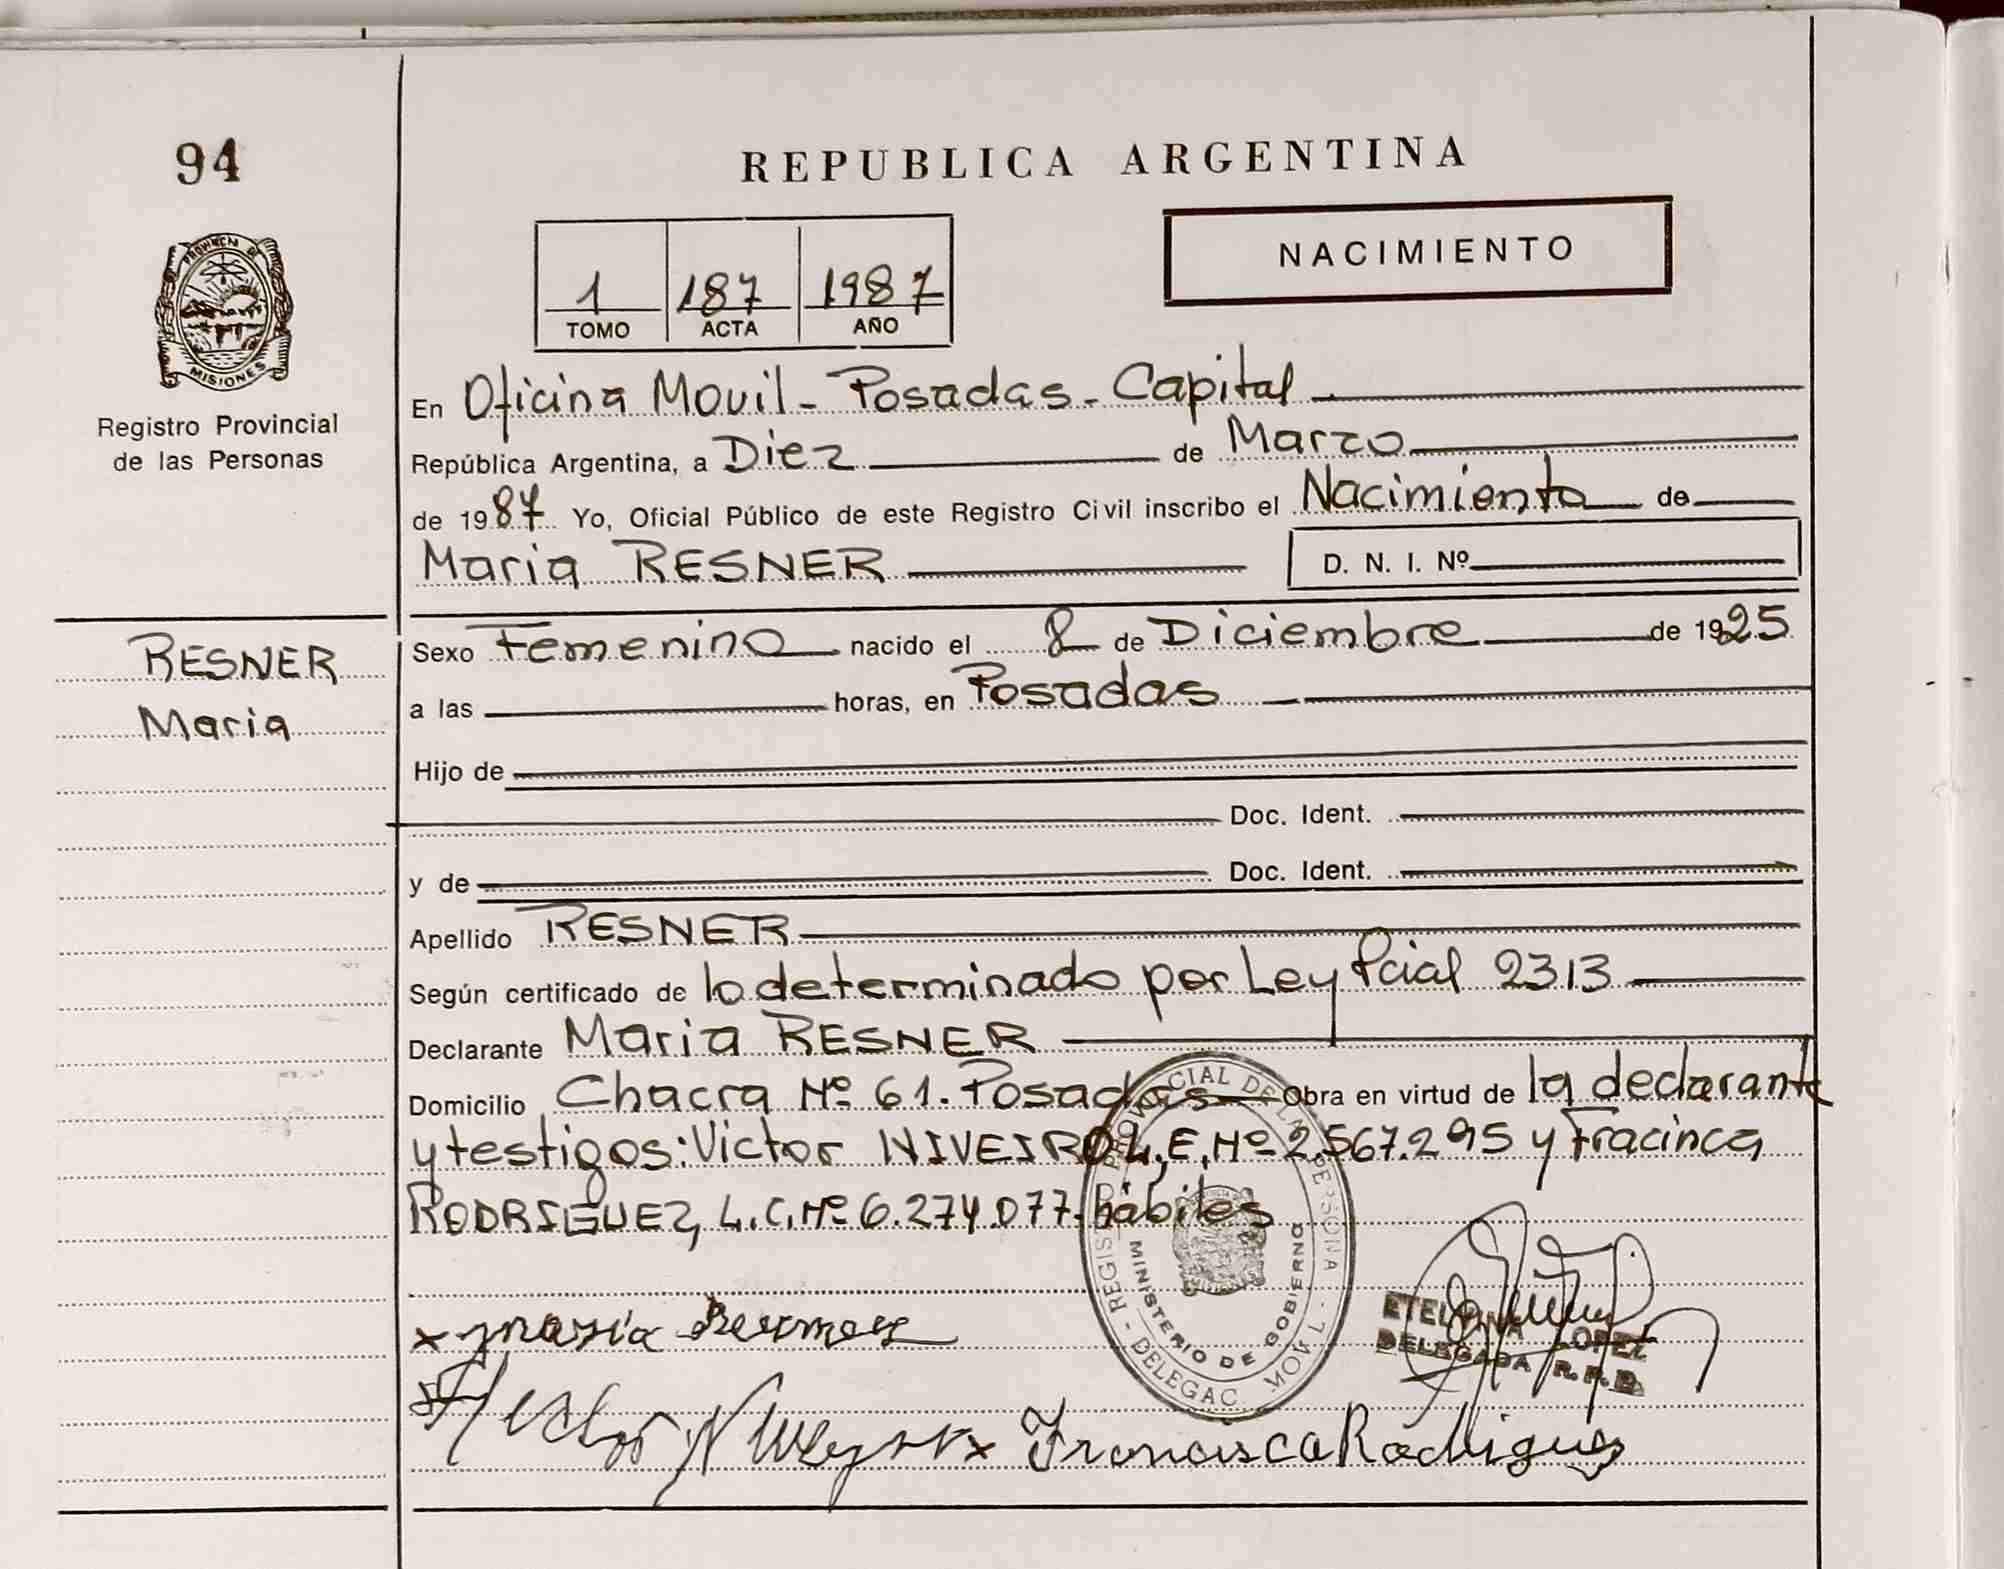 94
REPUBLICA ARGENTINA
PROVINCIA DE MISIONES
1 187 1987
TOMO ACTA AÑO
NACIMIENTO
Registro Provincial
de las Personas
En Oficina Movil - Posadas - Capital
República Argentina, a Diez de Marzo
de 1987 Yo, Oficial Público de este Registro Civil inscribo el Nacimiento de
Maria RESNER D. N. I. Nº
RESNER
Maria
Sexo Femenino nacido el 8 de Diciembre de 1925
a las horas, en Posadas
Hijo de
Doc. Ident.
y de Doc. Ident.
Apellido RESNER
Según certificado de lo determinado por Ley Pcial 2313
Declarante Maria RESNER
Domicilio Chacra Nº 61. Posadas Obra en virtud de la declarante
y testigos: Victor NIVEIRO L.E. Nº 2.567.295 y Fracinca
RODRIGUEZ, L.C. Nº 6.274.077. hábiles
REGISTRO PROVINCIAL DE LA PERSONA - DELEGAC. MOVIL -
MINISTERIO DE GOBIERNO
ETELVINA LOPEZ
DELEGADA R.P.P.
x maria
x Francisca Rodrigues